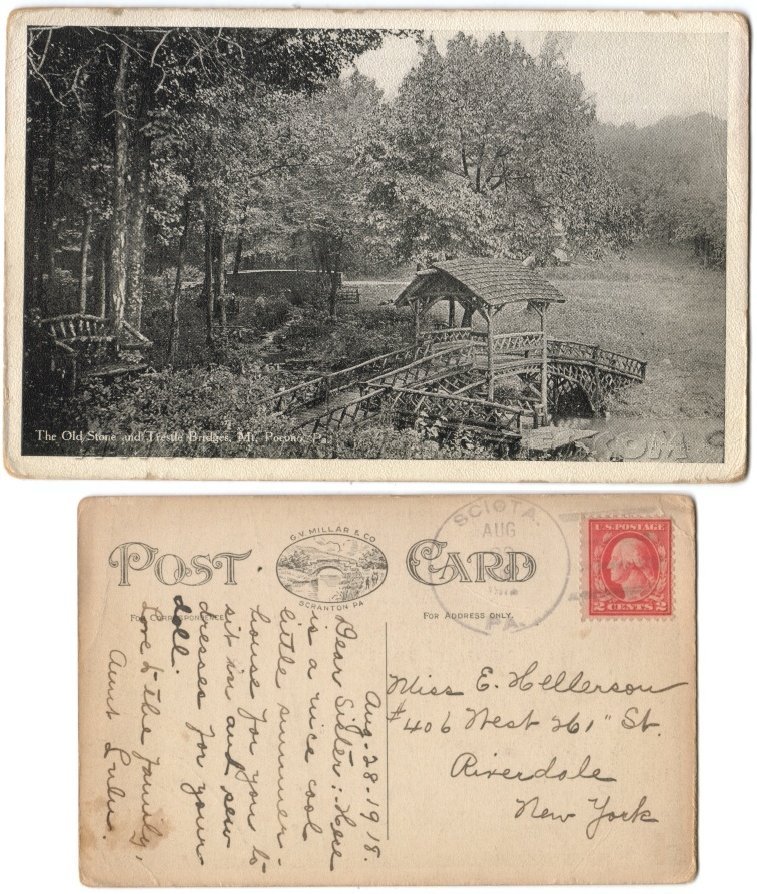 The Old Stone and Trestle Bridges, Mt. Pocono, Pa.
POST CARD
G.V. MILLAR & CO
SCRANTON PA
FOR CORRESPONDENCE
FOR ADDRESS ONLY.
SCIOTA.
AUG
PA.
U.S. POSTAGE
2 CENTS 2
Aug-28-1918.
Dear Sister: Here
is a nice cool
little summer-
house for you to
sit in and sew
dresses for your
doll.
Love to the family,
Aunt Lulu.
Miss E. Hellerson
#406 West 261" St.
Riverdale
New York